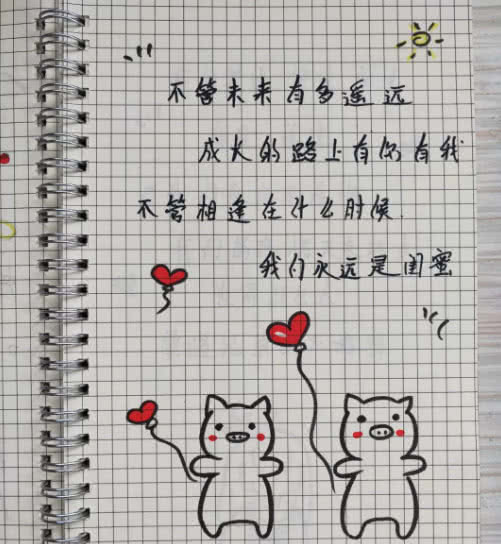 不管未来有多遥远
成长的路上有你有我
不管相逢在什么时候
我们永远是闺蜜